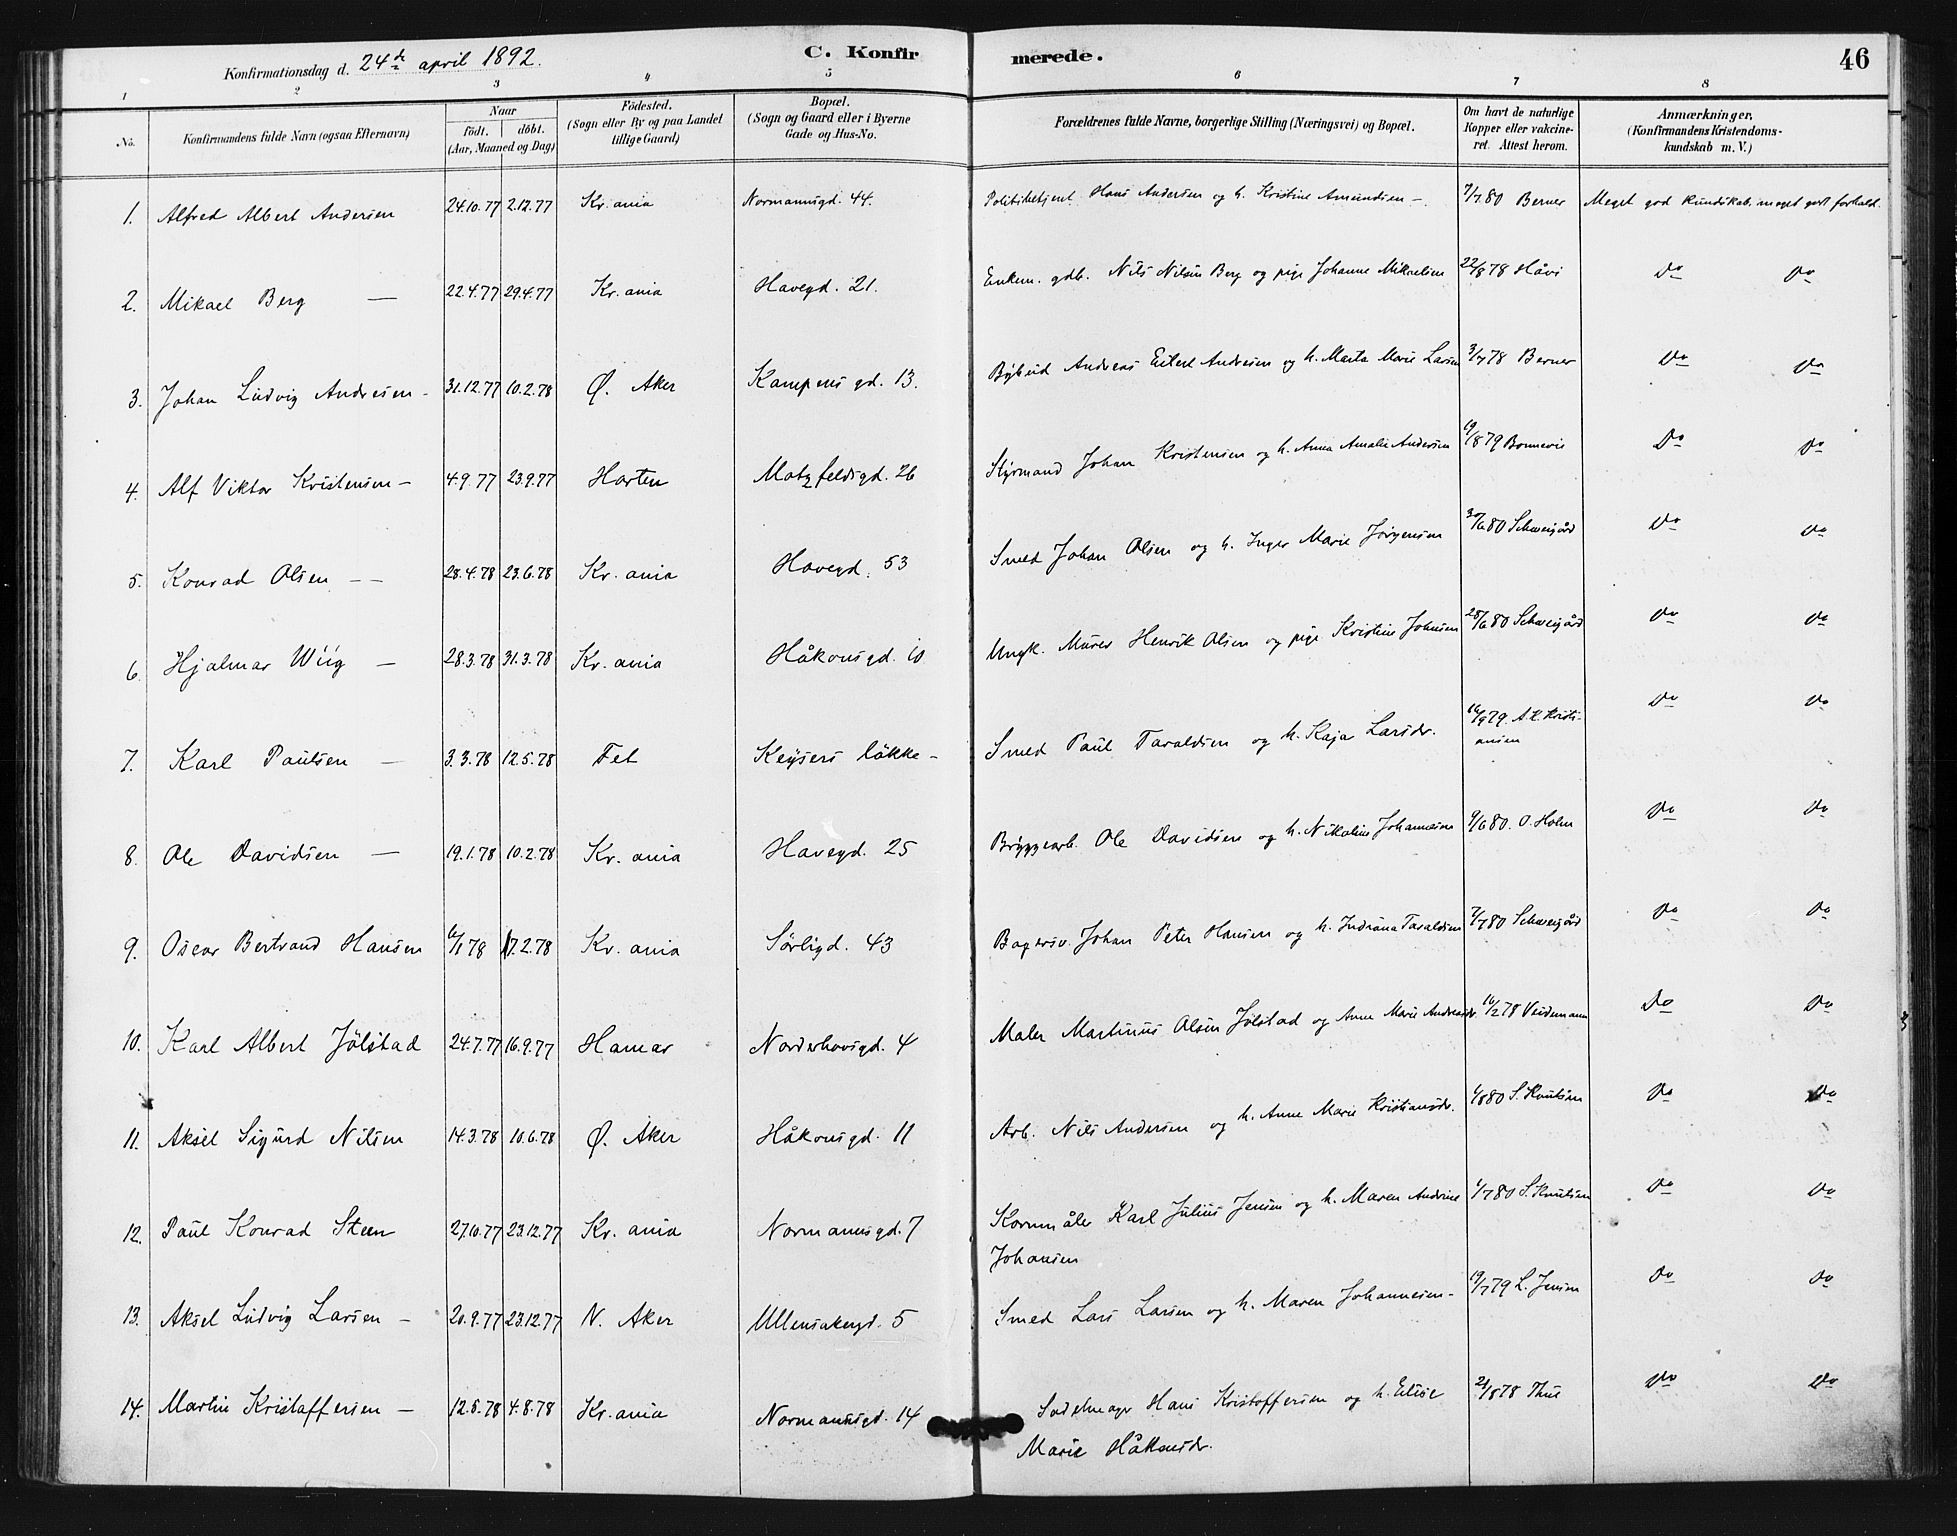 Konfirmationsdag d. 24de april 1892.
C. Konfirmerede.
46
1 2 3 4 5 6 7 8
No. Konfirmandens fulde Navn (ogsaa Efternavn) Naar födt. döbt. (Aar, Maaned og Dag) Födested. (Sogn eller By og paa Landet tillige Gaard) Bopæl. (Sogn og Gaard eller i Byerne Gade og Hus-No. Forældrenes fulde Navne, borgerlige Stilling (Næringsvei) og Bopæl. Om havt de naturlige Kopper eller vakcineret. Attest herom. Anmærkninger. (Konfirmandens Kristendomskundskab m. V.)
1. Alfred Albert Andersen 24.10.77 2.12.77 Kr.ania Normannsgd. 44. Politibetjent Hans Andersen og h. Kristine Amundsen – 7/7.80 Berner Meget god kundskab, meget godt forhold.
2. Mikael Berg — 22.4.77 29.4.77 Kr.ania Havegd. 21. Enkem. gdb. Nils Nilsen Berg og pige Johanne Mikaelsen 22/8 78 Håvi Do Do
3. Johan Ludvig Andresen - 31.12.77 10.2.78 Ø. Aker Kampensgd. 13. Bybud Andreas Eilert Andresen og h. Marta Marie Larsen 3/7 78 Berner Do Do
4. Alf Viktor Kristensen – 4.9.77 23.9.77 Horten Motzfeldsgd. 26 Styrmand Johan Kristensen og h. Anna Amalie Andersen 19/8 79 Bonnevie Do Do
5. Konrad Olsen — 28.4.78 23.6.78 Kr.ania Havegd. 53 Smed Johan Olsen og h. Inger Marie Jørgensen 30/6 80 Schweigård Do Do
6. Hjalmar Wiig — 28.3.78 31.3.78 Kr.ania Håkonsgd. 10 Ungk. Murer Henrik Olsen og pige Kristine Johnsen 28/6 80 Schweigård Do Do
7. Karl Paulsen — 3.3.78 12.5.78 Fet Keysers løkke - Smed Paul Taraldsen og h. Kaja Larsdr. 16/9 79. A.K. Kristiansen Do Do
8. Ole Davidsen — 19.1.78 10.2.78 Kr.ania Havegd. 25 Bryggearb. Ole Davidsen og h. Nikoline Johannesen 9/6 80. O. Holm Do Do
9. Oscar Bertrand Hansen 6/1 78 17.2.78 Kr.ania Sørligd. 43 Bagersv. Johan Peter Hansen og h. Indiana Taraldsen 7/7 80 Schweigård Do Do
10. Karl Albert Jølstad 24.7.77 16.9.77 Hamar Norderhovsgd. 4 Maler Martinus Olsen Jølstad og Anne Marie Andreasdr. 16/2 78 Veidemann Do Do
11. Aksel Sigurd Nilsen 14.3.78 10.6.78 Ø. Aker Håkonsgd. 11 Arb. Nils Andersen og h. Anne Marie Kristiansdr. 6/8 80 S. Knutsen Do Do
12. Paul Konrad Steen 27.10.77 23.12.77 Kr.ania Normannsgd. 7 Kornmåler Karl Julius Jensen og h. Maren Andrine Johansen 1/7 80 S. Knutsen Do Do
13. Aksel Ludvig Larsen – 20.9.77 23.12.77 N. Aker Ullensakergd. 5 Smed Lars Larsen og h. Maren Johannesen - 19/7 79 L. Jensen Do Do
14. Martin Kristoffersen – 12.5.78 4.8.78 Kr.ania Normannsgd. 14 Sadelmager Hans Kristoffersen og h. Elise Marie Håkonsdr. 21/8 78 Thue Do Do